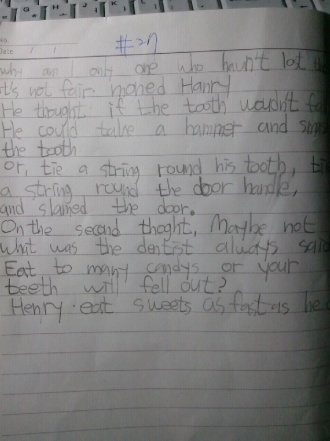 No.
Date / /
why am I only one who hasn't lost
it's not fair moned Hanry
He thought if the tooth woudn't
He could take a hammer and
the tooth
or, tie a string round his tooth,
a string round the door handle,
and slamed the door.
On the second thoght, Maybe not
what was the dentist always
Eat to many candys or your
teeth will fell out?
Henry eat sweets as fast as